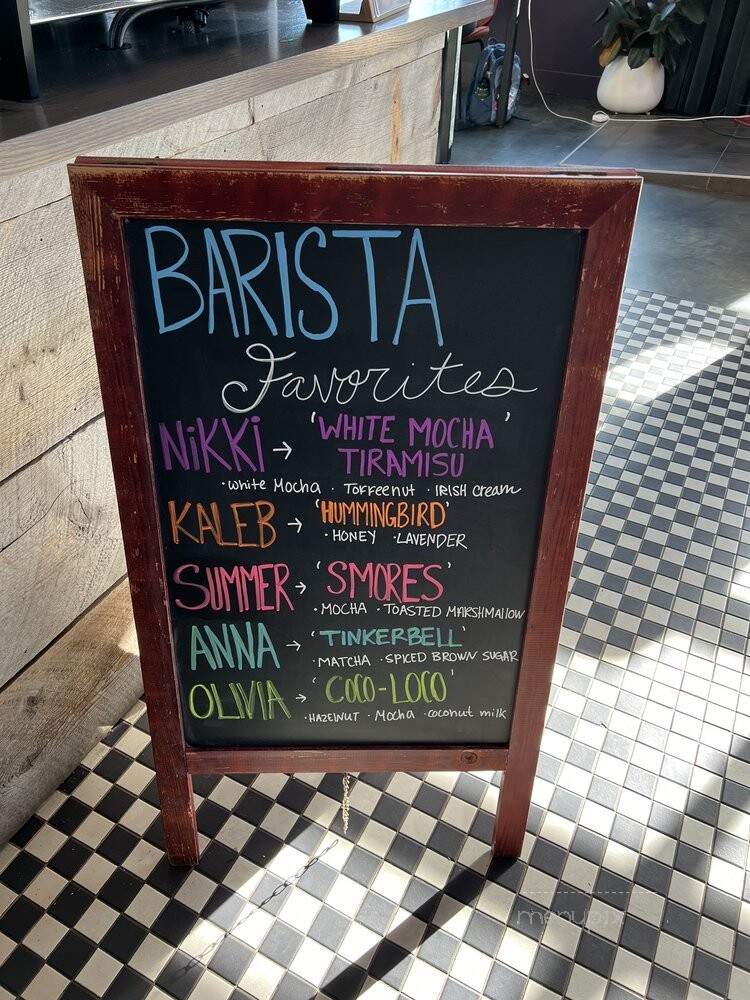 BARISTA
Favorites
NiKKi → 'WHITE MOCHA'
TIRAMISU
·white Mocha · Toffeenut · IRISH Cream
KALEB → 'HUMMINGBIRD'
· HONEY · LAVENDER
SUMMER → 'SMORES'
· MOCHA · TOASTED MARSHMALLOW
ANNA → 'TINKERBELL'
· MATCHA · SPICED BROWN SUGAR
OLIVIA → 'COCO-LOCO'
· HAZELNUT · Mocha · coconut milk
menupix